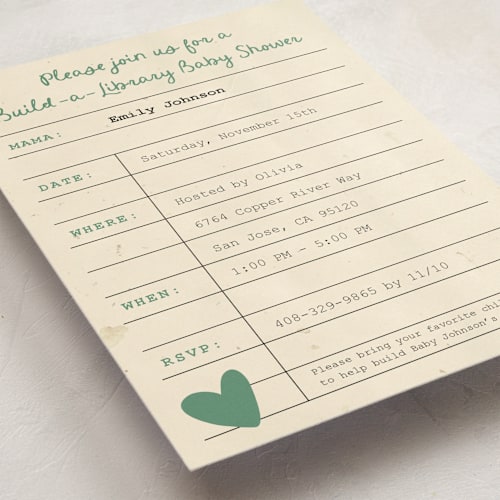 Please join us for a
Build-a-Library Baby Shower
MAMA: Emily Johnson
DATE: Saturday, November 15th
WHERE: Hosted by Olivia
6764 Copper River Way
San Jose, CA 95120
WHEN: 1:00 PM - 5:00 PM
RSVP: 408-329-9865 by 11/10
Please bring your favorite
to help build Baby Johnson's